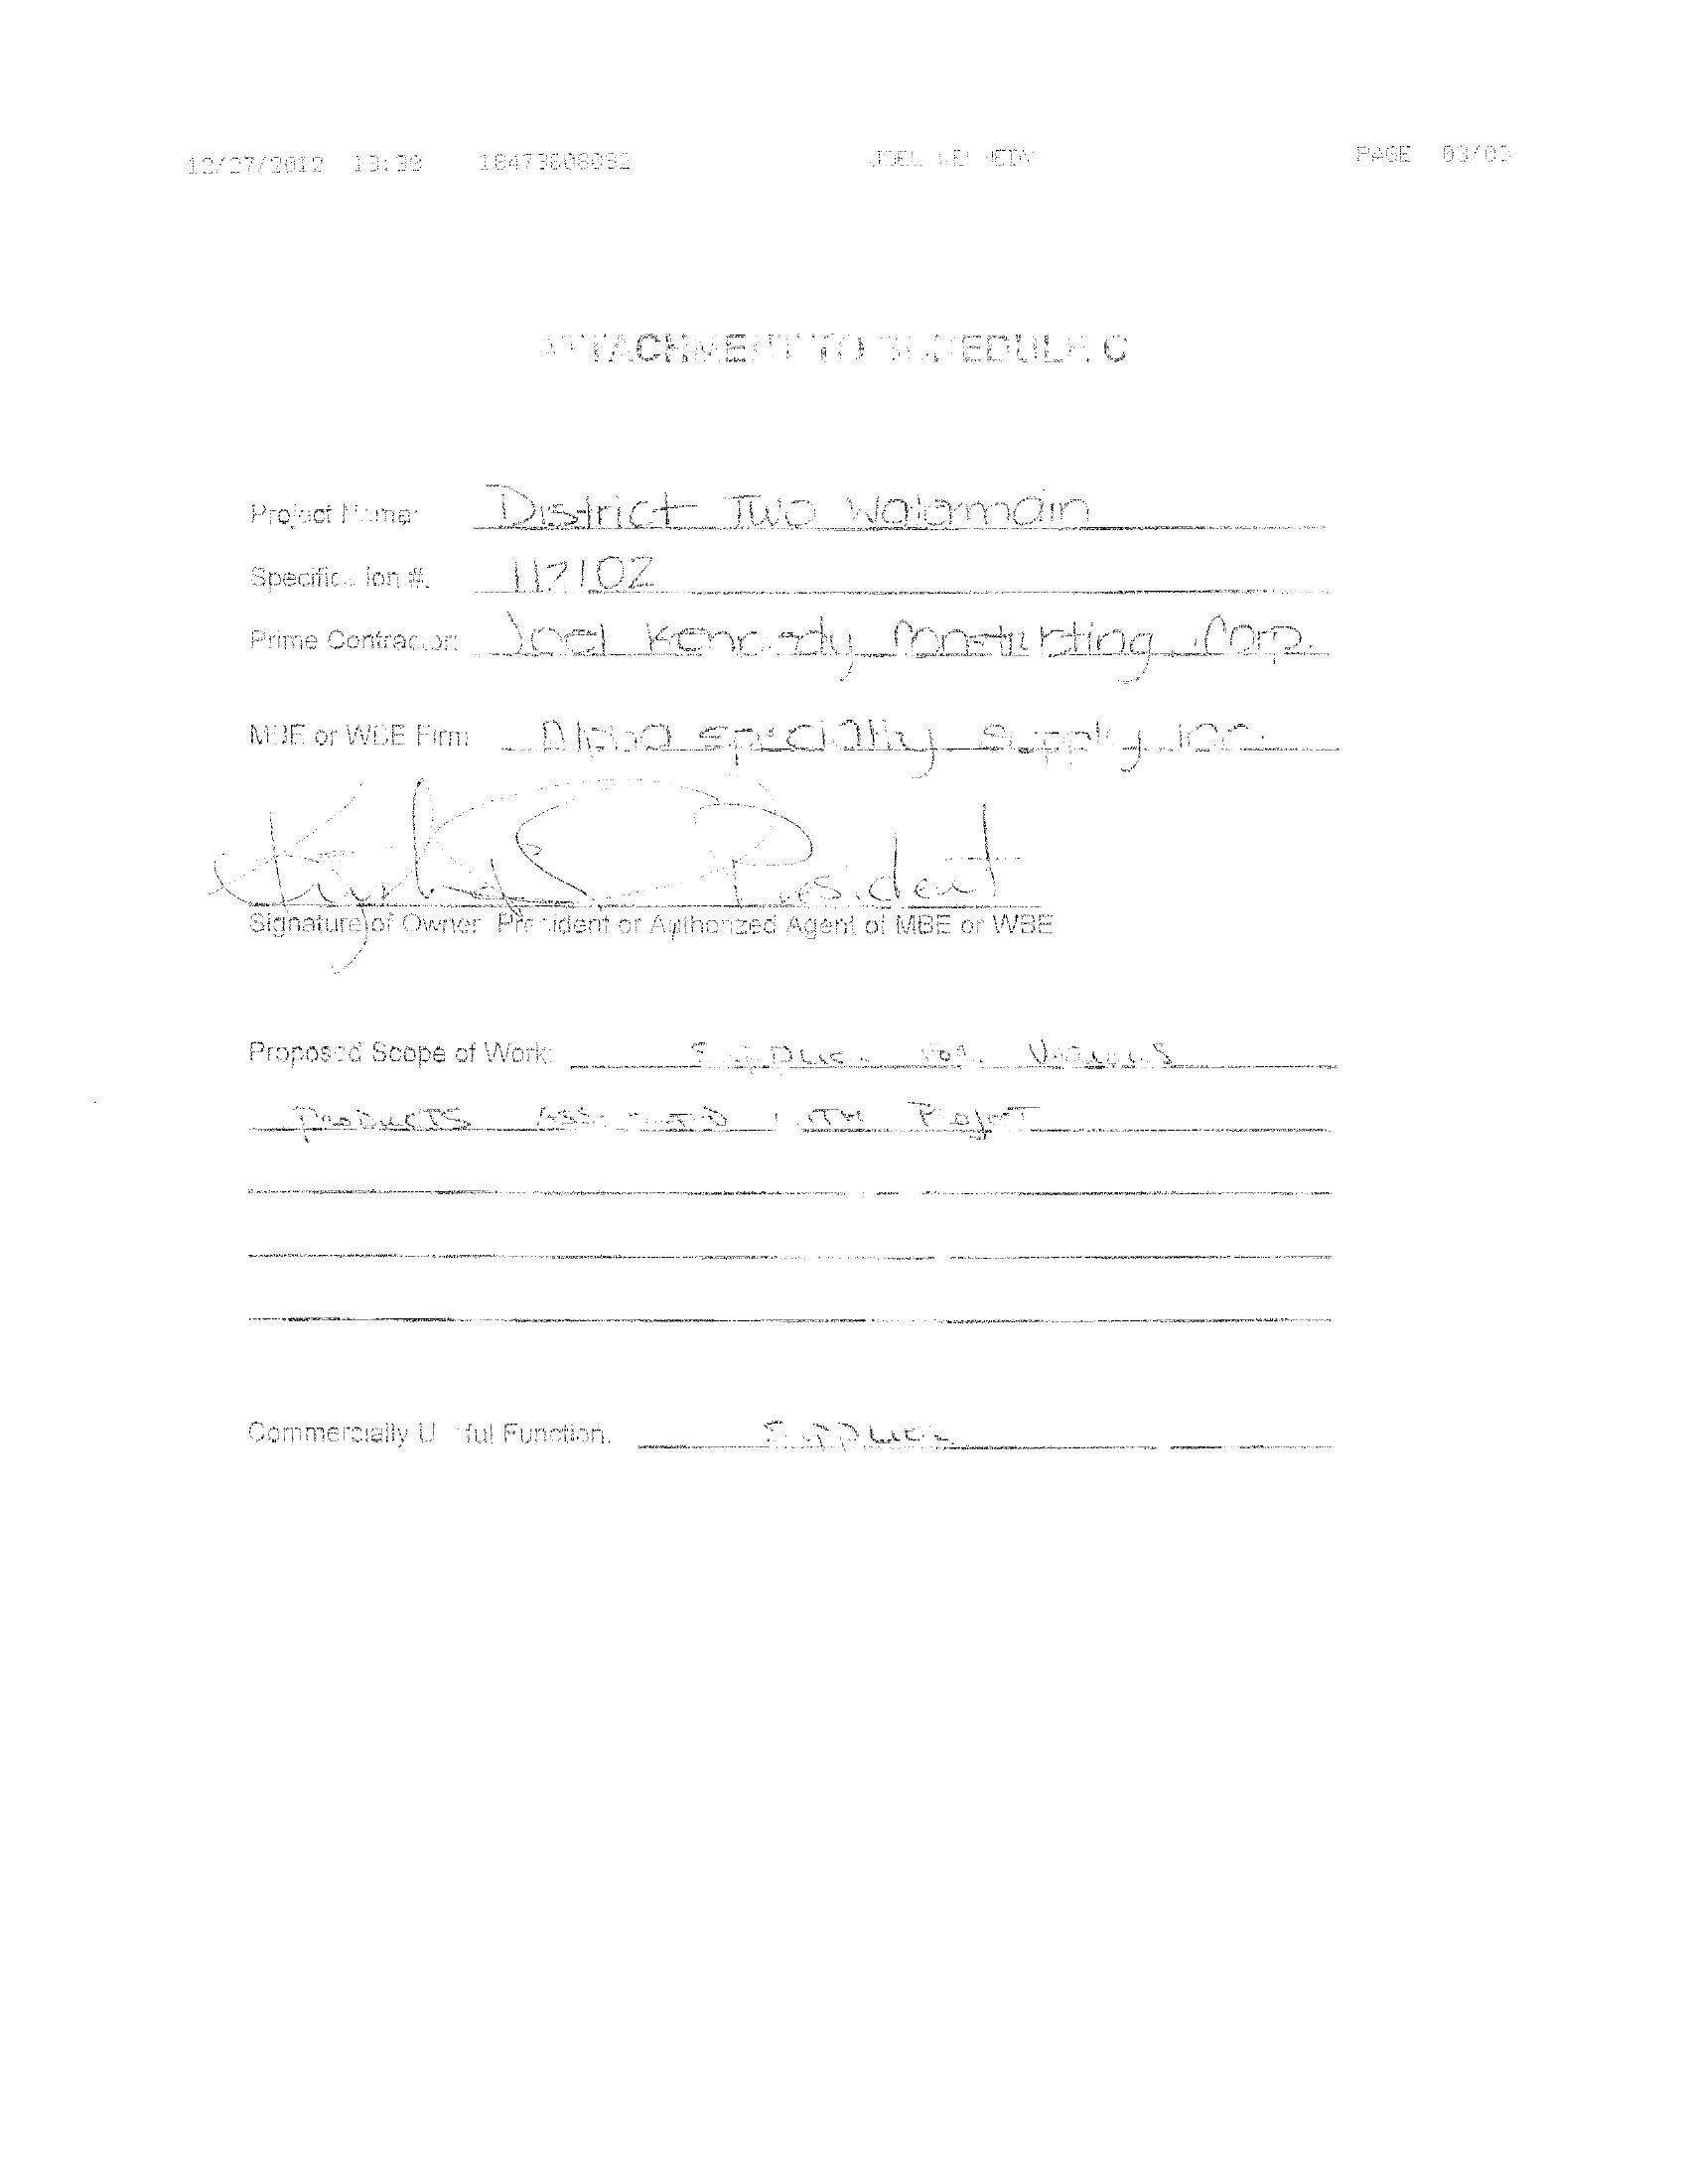 12/27/2012 13:39 18473608092 JOEL KENNEDY PAGE 03/03
ATTACHMENT TO SCHEDULE C
Project Name: District Two Watermain
Specification #: 117102
Prime Contractor: Joel Kennedy Constructing Corp.
MBE or WBE Firm: Alpha Specialty Supply Inc.
President
Signature of Owner, President or Authorized Agent of MBE or WBE
Proposed Scope of Work: Supplier for Various
Products Associated with Project
Commercially Useful Function: Supplier